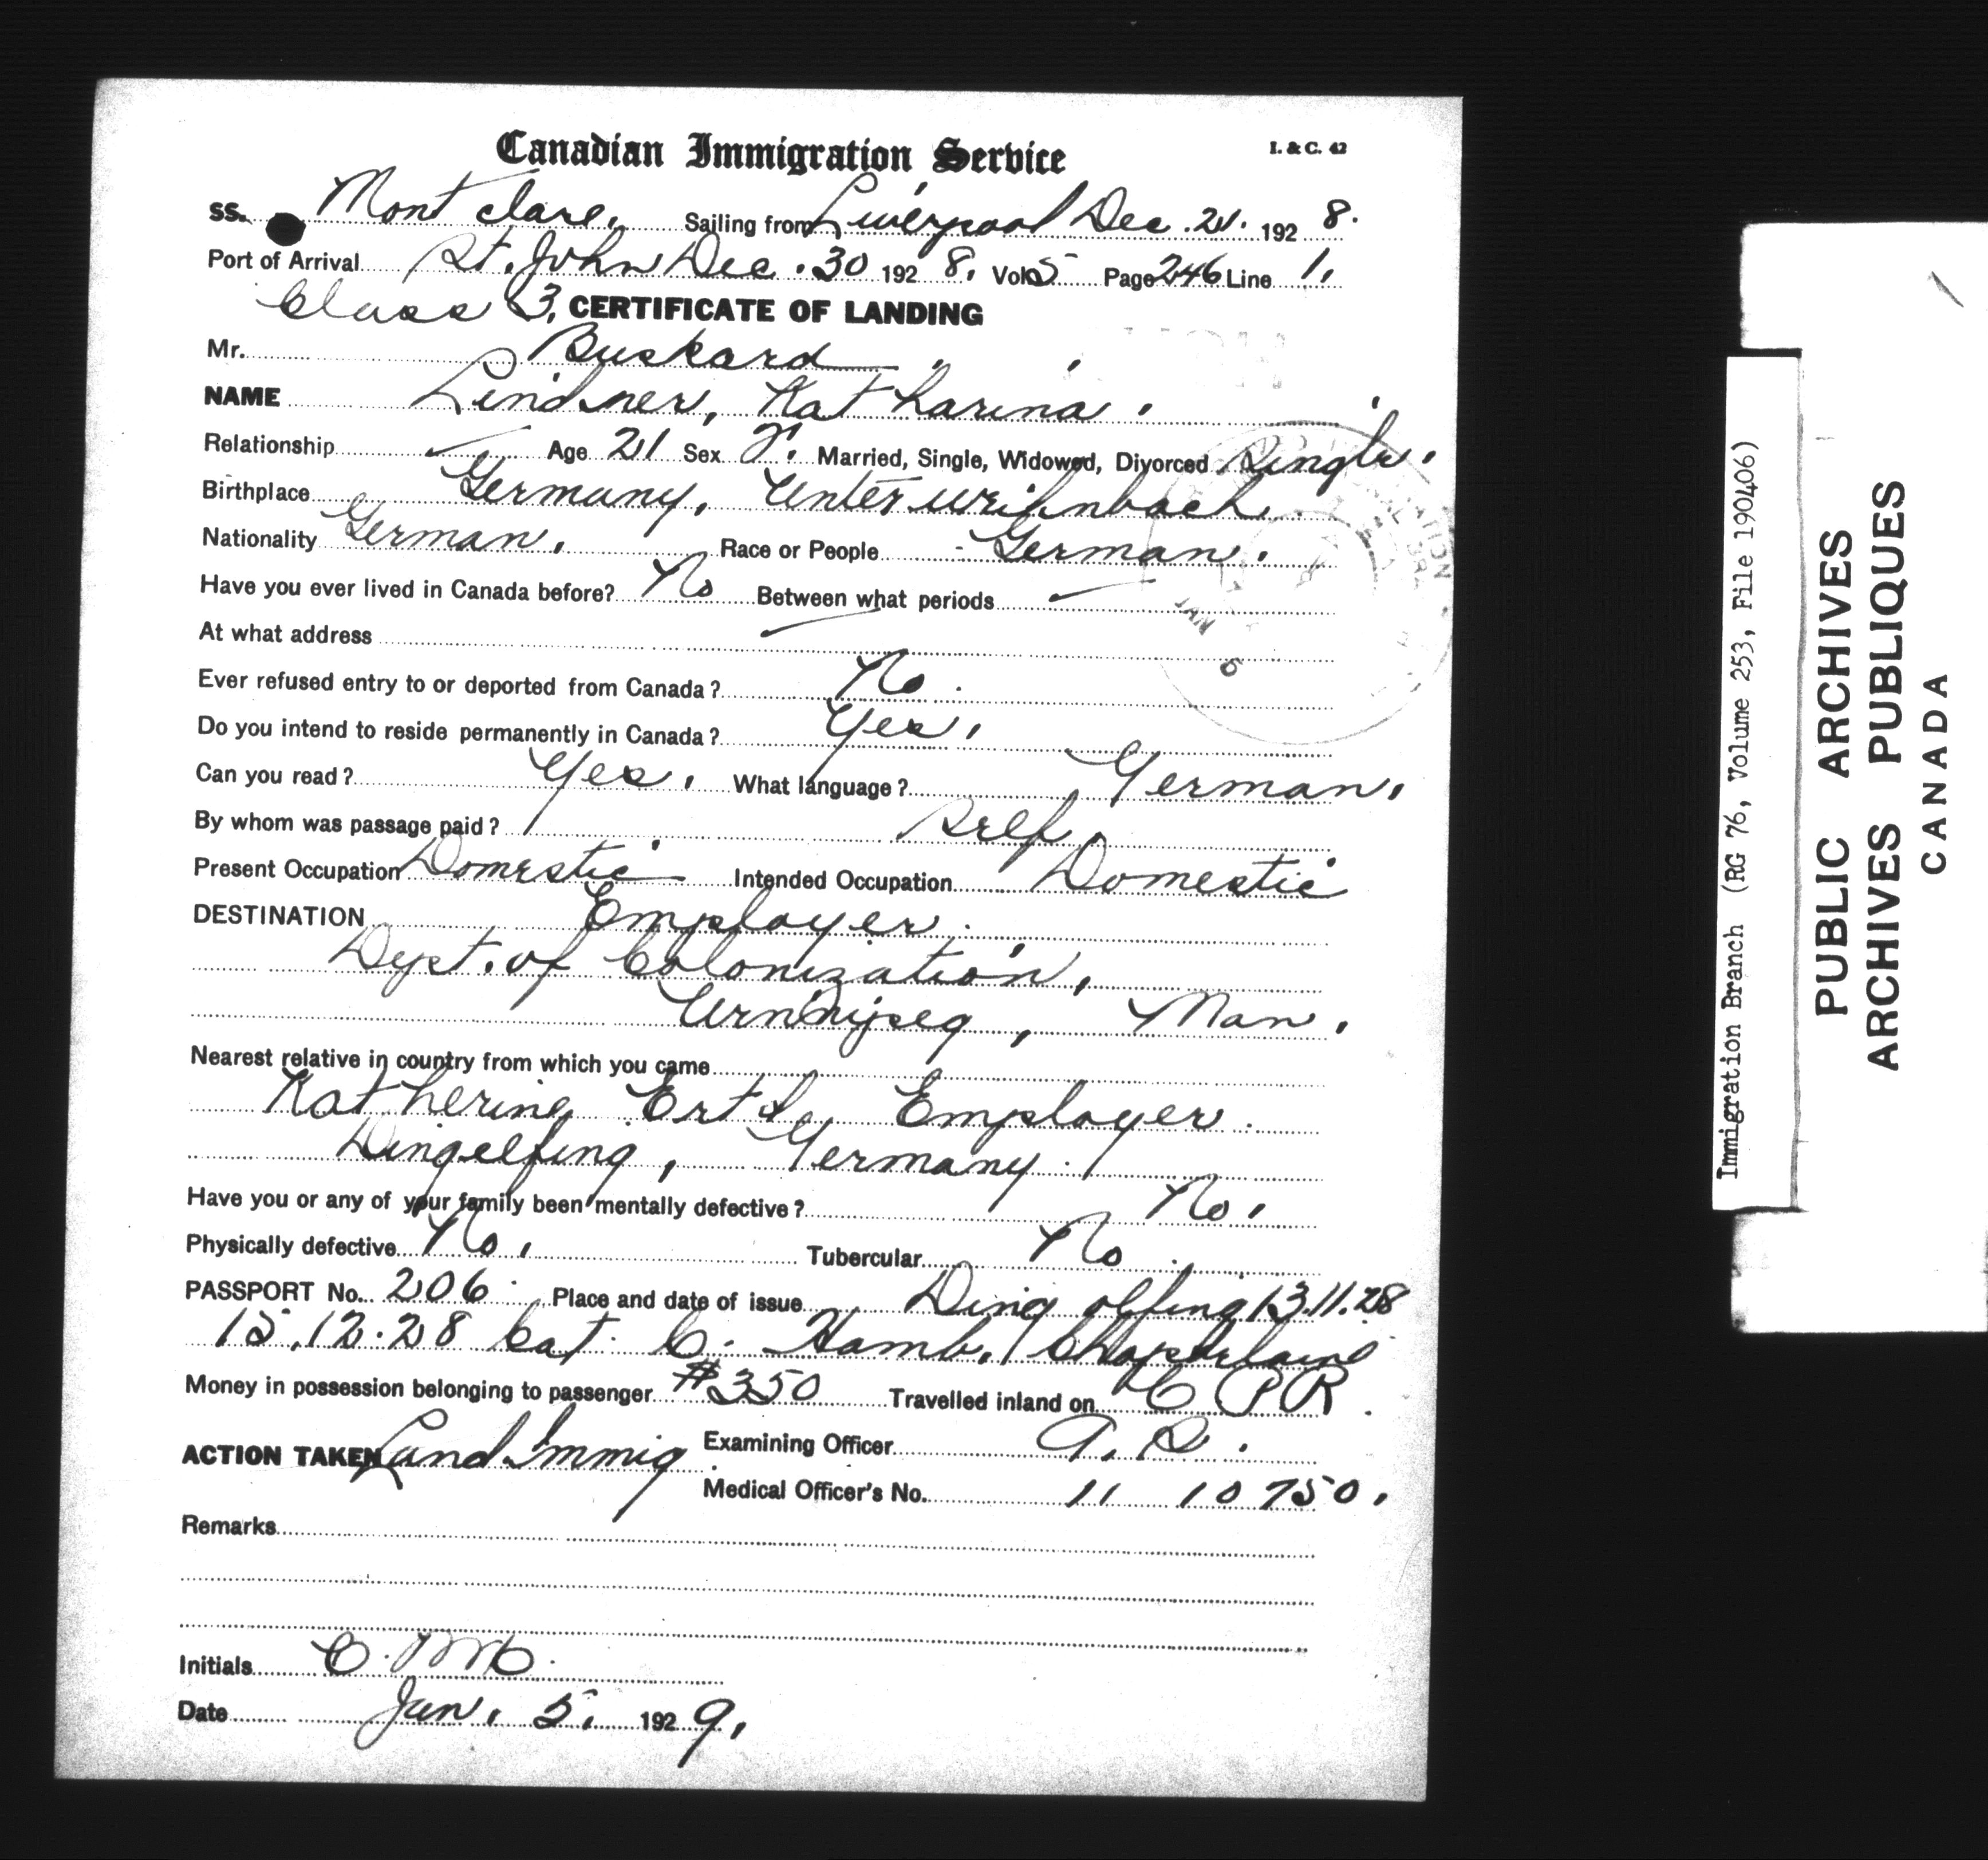 Canadian Immigration Service
I. & C. 42
SS. Mont clare, Sailing from Liverpool Dec. 21. 192 8.
Port of Arrival St. John Dec. 30 192 8. Vol. 5 Page 246 Line 1.
Class 3. CERTIFICATE OF LANDING
Mr. Buskard
NAME Lindner, Katharina.
Relationship Age 21 Sex F. Married, Single, Widowed, Divorced Single.
Birthplace Germany,
Nationality German. Race or People German.
Have you ever lived in Canada before? No Between what periods
At what address
Ever refused entry to or deported from Canada? No.
Do you intend to reside permanently in Canada? Yes.
Can you read? Yes. What language? German.
By whom was passage paid? Self.
Present Occupation Domestic Intended Occupation Domestic
DESTINATION Employer.
Dept. of Colonization,
Winnipeg, Man.
Nearest relative in country from which you came
Katherine Ertl, Employer.
Dingelfing, Germany.
Have you or any of your family been mentally defective? No.
Physically defective No. Tubercular No.
PASSPORT No. 206. Place and date of issue Dingolfing 13.11.28
15.12.28 Cat. C. Hamb. Chapdelaine
Money in possession belonging to passenger $350 Travelled inland on C P R.
ACTION TAKEN Land Immig. Examining Officer
Medical Officer's No. 11 10750.
Remarks
Initials
Date Jan. 5. 192 9.
Immigration Branch (RG 76, Volume 253, File 190406)
PUBLIC ARCHIVES
ARCHIVES PUBLIQUES
CANADA